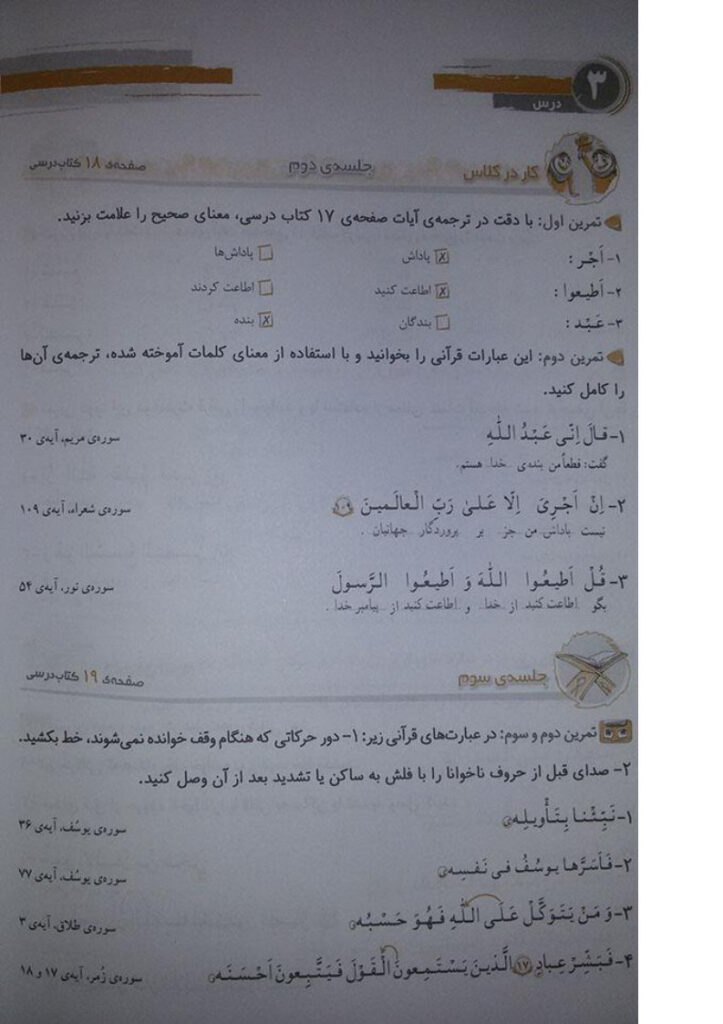 ۳
درس
کار در کلاس جلسه‌ی دوم صفحه‌ی ۱۸ کتاب درسی
تمرین اول: با دقت در ترجمه‌ی آیات صفحه‌ی ۱۷ کتاب درسی، معنای صحیح را علامت بزنید.
۱- اَجْر : ☒ پاداش ☐ پاداش‌ها
۲- اَطیعوا : ☒ اطاعت کنید ☐ اطاعت کردند
۳- عَبْد : ☐ بندگان ☒ بنده
تمرین دوم: این عبارات قرآنی را بخوانید و با استفاده از معنای کلمات آموخته شده، ترجمه‌ی آن‌ها
را کامل کنید.
۱- قالَ اِنّی عَبْدُ اللّٰهِ سوره‌ی مریم، آیه‌ی ۳۰
گفت: قطعاً من بنده‌ی خدا هستم.
۲- اِنْ اَجْرِیَ اِلّا عَلیٰ رَبِّ الْعالَمینَ ۱۰۹ سوره‌ی شعراء، آیه‌ی ۱۰۹
نیست پاداش من جز بر پروردگار جهانیان .
۳- قُلْ اَطیعُوا اللّٰهَ وَ اَطیعُوا الرَّسولَ سوره‌ی نور، آیه‌ی ۵۴
بگو اطاعت کنید از خدا و اطاعت کنید از پیامبر خدا .
جلسه‌ی سوم صفحه‌ی ۱۹ کتاب درسی
تمرین دوم و سوم: در عبارت‌های قرآنی زیر: ۱- دور حرکاتی که هنگام وقف خوانده نمی‌شوند، خط بکشید.
۲- صدای قبل از حروف ناخوانا را با فلش به ساکن یا تشدید بعد از آن وصل کنید.
۱- نَبِّئْنا بِتَأْویلِه سوره‌ی یوسُف، آیه‌ی ۳۶
۲- فَاَسَرَّها یوسُفُ فی نَفسِه سوره‌ی یوسُف، آیه‌ی ۷۷
۳- وَ مَنْ یَتَوَکَّلْ عَلَی اللّٰهِ فَهُوَ حَسْبُه سوره‌ی طلاق، آیه‌ی ۳
۴- فَبَشِّرْ عِبادِ ۱۷ الَّذینَ یَسْتَمِعونَ الْقَوْلَ فَیَتَّبِعونَ اَحْسَنَه سوره‌ی زُمر، آیه‌ی ۱۷ و ۱۸